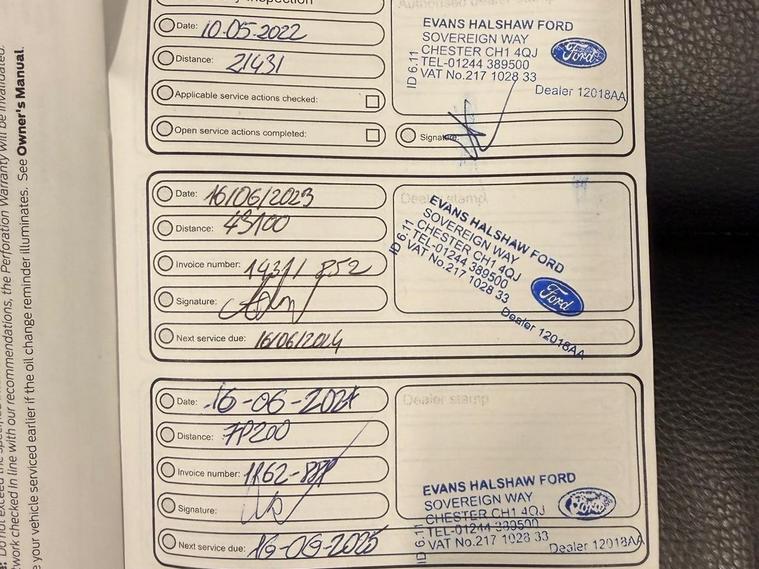 Date: 10-05-2022
Distance: 21431
Applicable service actions checked:
Open service actions completed:
EVANS HALSHAW FORD
SOVEREIGN WAY
CHESTER CH1 4QJ
TEL-01244 389500
VAT No.217 1028 33
ID 6.11
Ford
Dealer 12018AA
Signature:
Date: 16/06/2023
Distance: 43100
Invoice number: 1431/852
Signature:
Next service due: 16/06/2024
Dealer stamp
EVANS HALSHAW FORD
SOVEREIGN WAY
CHESTER CH1 4QJ
TEL-01244 389500
VAT No.217 1028 33
ID 6.11
Ford
Dealer 12018AA
Date: 16-06-2024
Distance:
Invoice number:
Signature:
Next service due:
Dealer stamp
EVANS HALSHAW FORD
SOVEREIGN WAY
CHESTER CH1 4QJ
TEL-01244 389500
VAT No.217 1028 33
ID 6.11
Ford
Dealer 12018AA
the Perforation Warranty will be invalidated.
work checked in line with our recommendations,
your vehicle serviced earlier if the oil change reminder illuminates. See Owner's Manual.